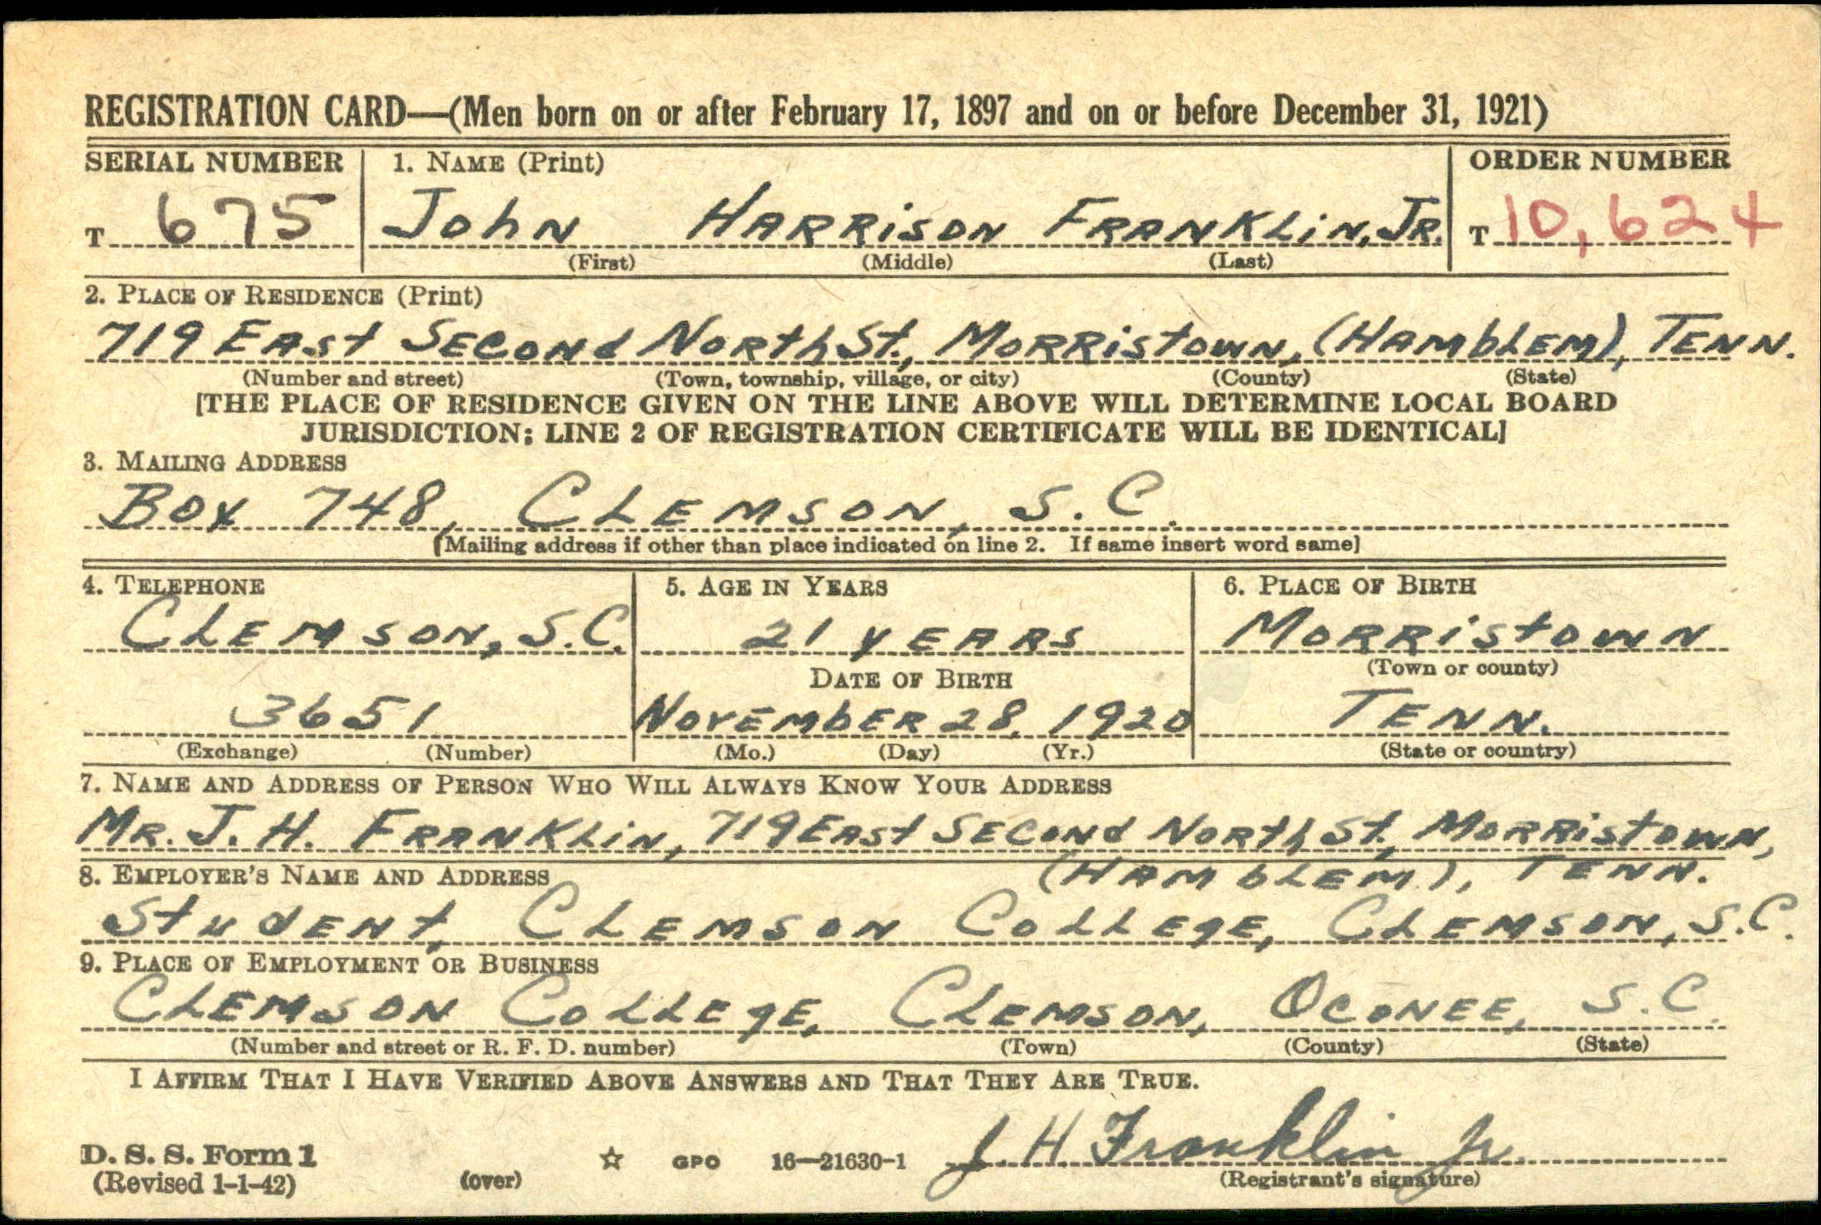 REGISTRATION CARD—(Men born on or after February 17, 1897 and on or before December 31, 1921)
SERIAL NUMBER 1. NAME (Print) ORDER NUMBER
T 675 JOHN HARRISON FRANKLIN, JR. T 10,624
(First) (Middle) (Last)
2. PLACE OF RESIDENCE (Print)
719 EAST SECOND NORTH ST., MORRISTOWN, (HAMBLEM), TENN.
(Number and street) (Town, township, village, or city) (County) (State)
[THE PLACE OF RESIDENCE GIVEN ON THE LINE ABOVE WILL DETERMINE LOCAL BOARD
JURISDICTION; LINE 2 OF REGISTRATION CERTIFICATE WILL BE IDENTICAL]
3. MAILING ADDRESS
BOX 748, CLEMSON, S.C.
[Mailing address if other than place indicated on line 2. If same insert word same]
4. TELEPHONE 5. AGE IN YEARS 6. PLACE OF BIRTH
CLEMSON, S.C. 21 YEARS MORRISTOWN
DATE OF BIRTH (Town or county)
3651 NOVEMBER 28, 1920 TENN.
(Exchange) (Number) (Mo.) (Day) (Yr.) (State or country)
7. NAME AND ADDRESS OF PERSON WHO WILL ALWAYS KNOW YOUR ADDRESS
MR. J. H. FRANKLIN, 719 EAST SECOND NORTH ST., MORRISTOWN,
8. EMPLOYER'S NAME AND ADDRESS (HAMBLEM), TENN.
STUDENT, CLEMSON COLLEGE, CLEMSON, S.C.
9. PLACE OF EMPLOYMENT OR BUSINESS
CLEMSON COLLEGE, CLEMSON, OCONEE, S.C.
(Number and street or R. F. D. number) (Town) (County) (State)
I AFFIRM THAT I HAVE VERIFIED ABOVE ANSWERS AND THAT THEY ARE TRUE.
D. S. S. Form 1 J. H. Franklin Jr.
(Revised 1-1-42) (over) ☆ GPO 16—21630-1 (Registrant's signature)